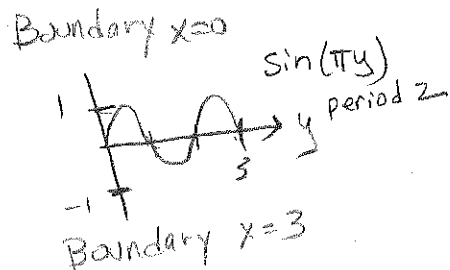 Boundary x=0
sin(πy)
period 2
1
y
3
-1
Boundary x=3